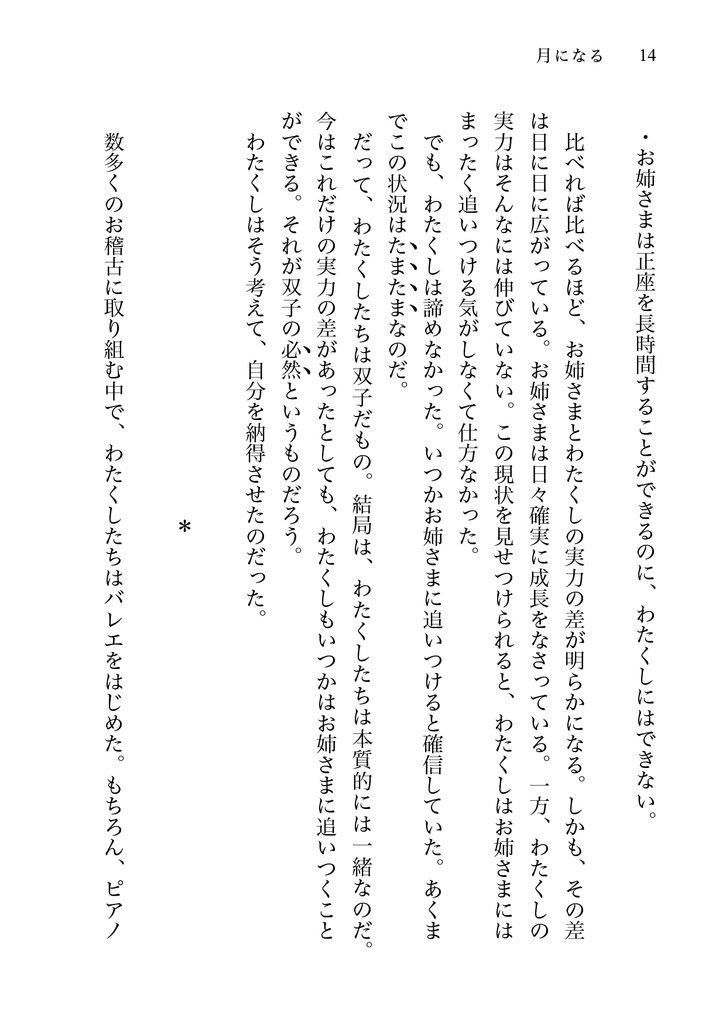 月になる 14
・お姉さまは正座を長時間することができるのに、わたくしにはできない。
比べれば比べるほど、お姉さまとわたくしの実力の差が明らかになる。しかも、その差
は日に日に広がっている。お姉さまは日々確実に成長をなさっている。一方、わたくしの
実力はそんなには伸びていない。この現状を見せつけられると、わたくしはお姉さまには
まったく追いつける気がしなくて仕方なかった。
でも、わたくしは諦めなかった。いつかお姉さまに追いつけると確信していた。あくま
でこの状況はたまたまなのだ。
だって、わたくしたちは双子だもの。結局は、わたくしたちは本質的には一緒なのだ。
今はこれだけの実力の差があったとしても、わたくしもいつかはお姉さまに追いつくこと
ができる。それが双子の必然というものだろう。
わたくしはそう考えて、自分を納得させたのだった。
*
数多くのお稽古に取り組む中で、わたくしたちはバレエをはじめた。もちろん、ピアノ